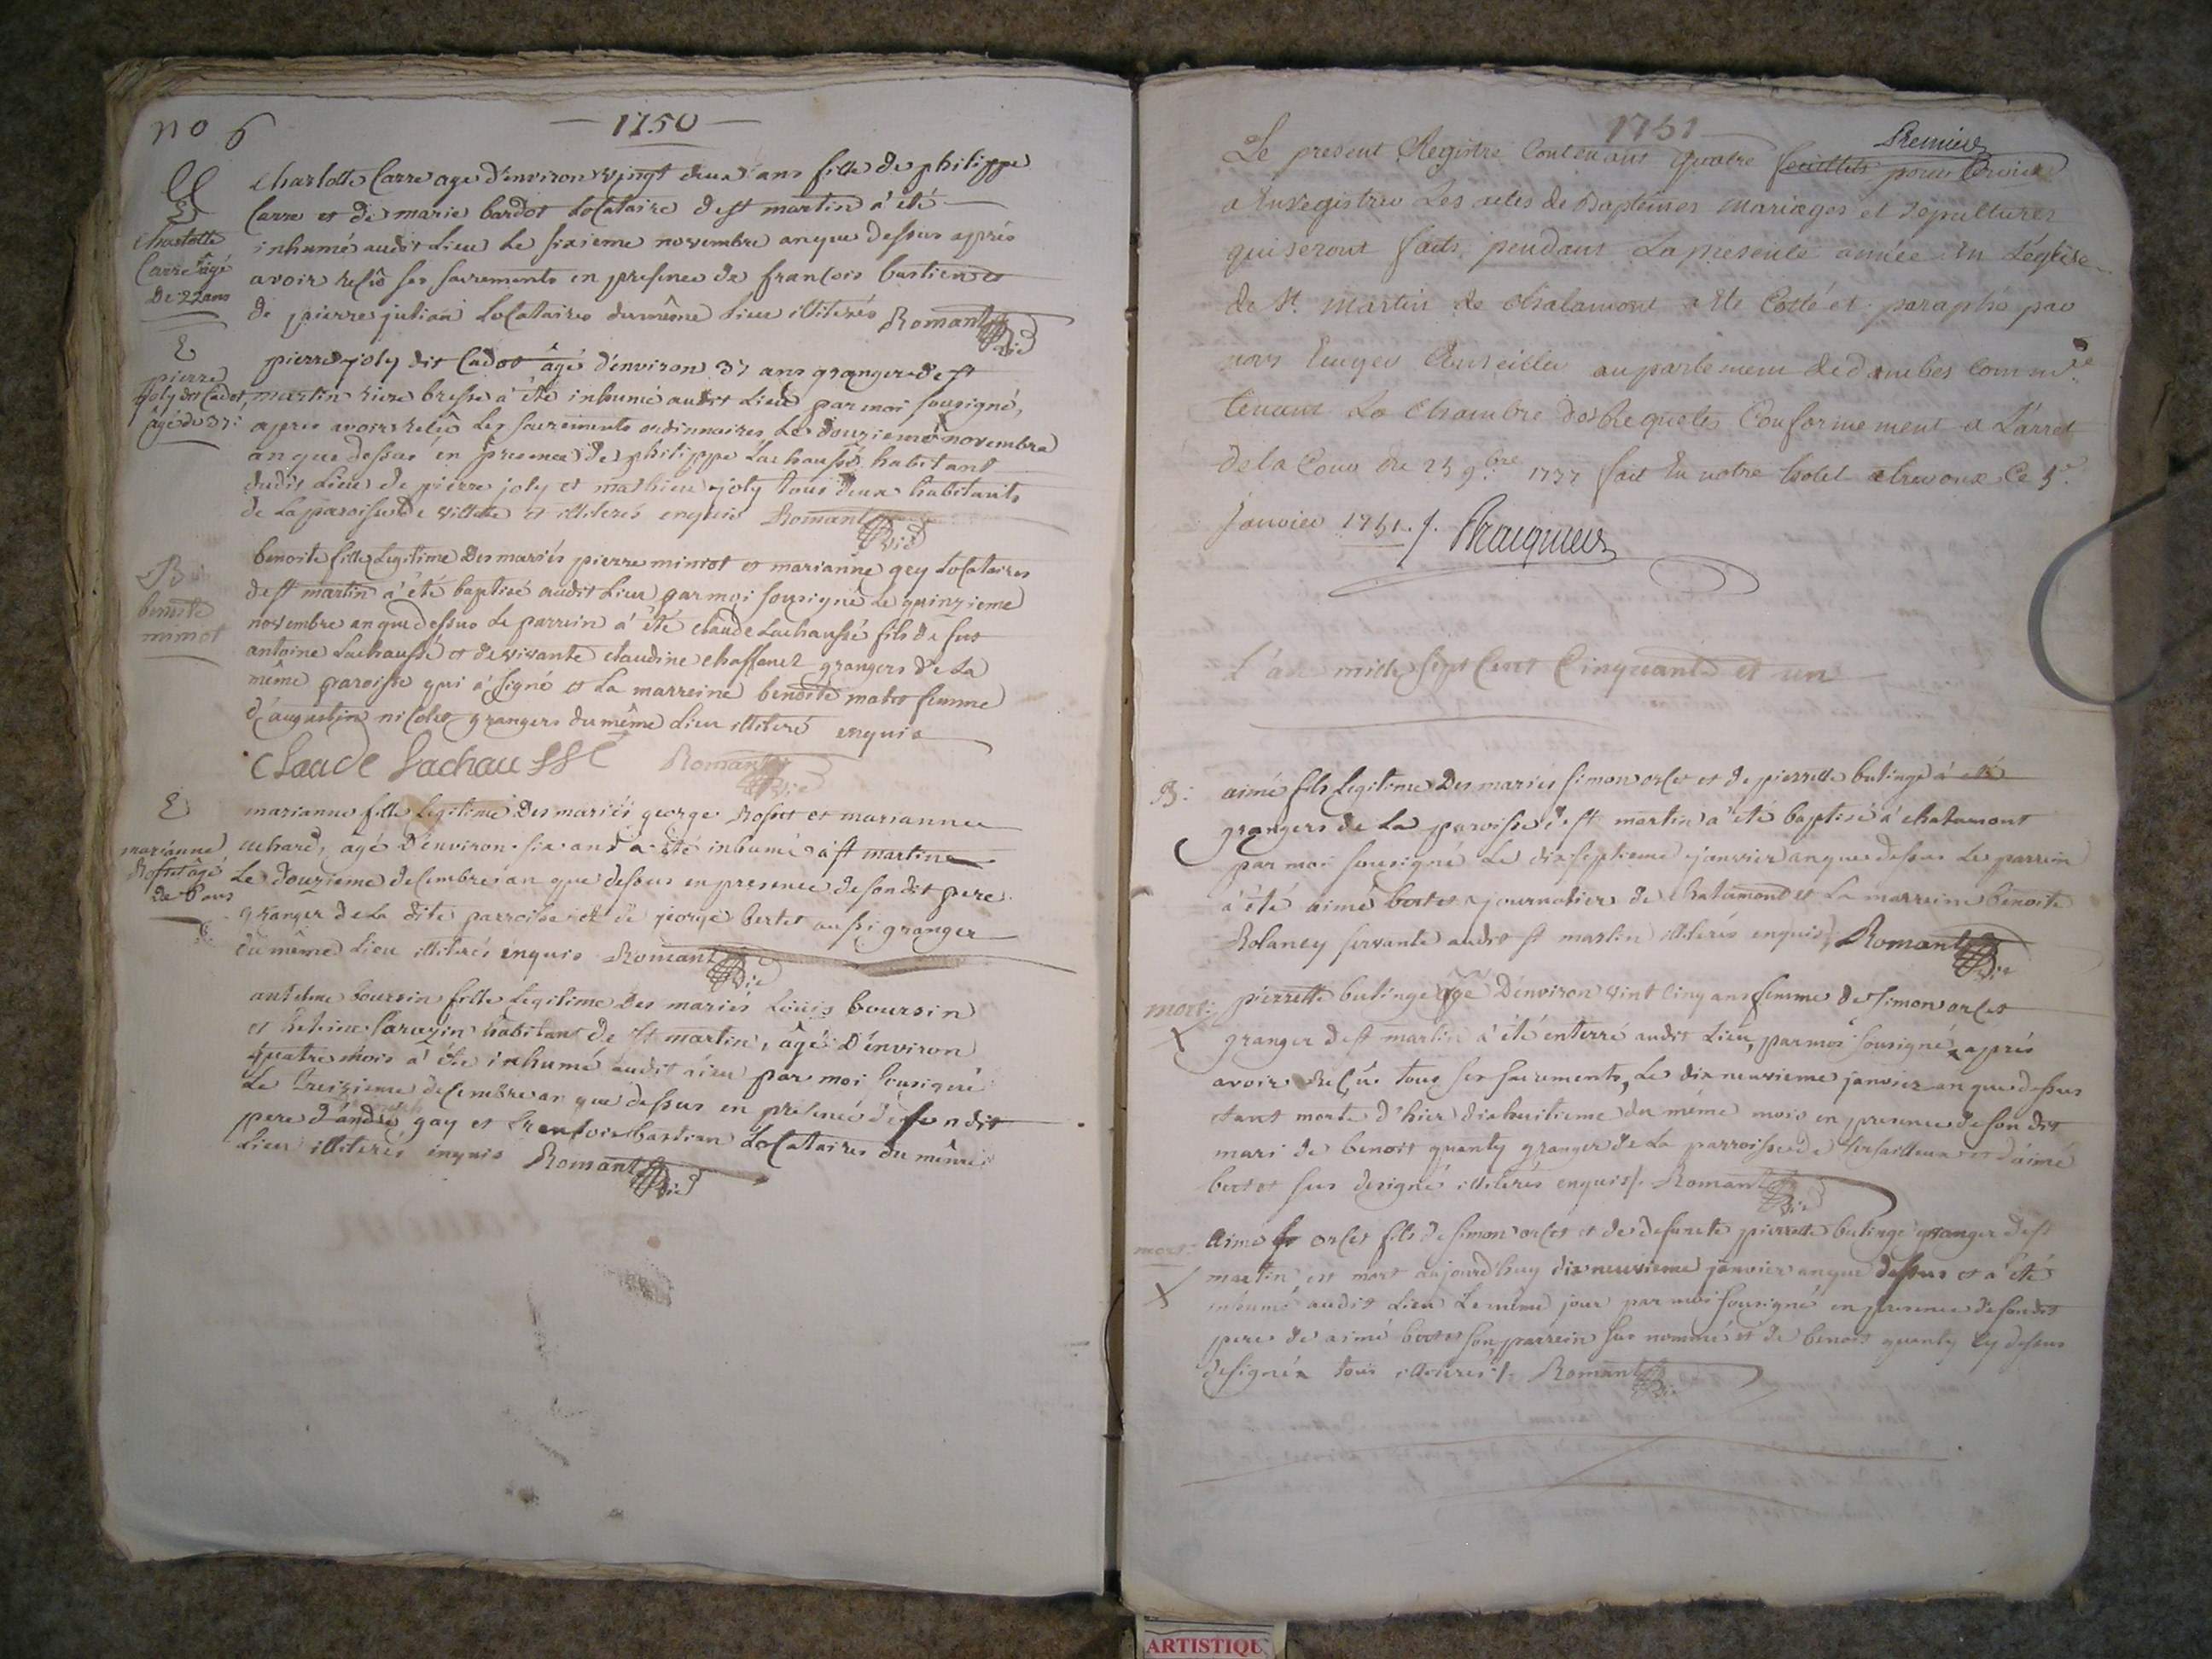 no 6
— 1750 —
E
charlotte
Carre âgé
De 22 ans
charlotte Carre age d'environ vpingt deux ans fille de philippe
Carre et de marie bardot Locataire de st martin a été
inhumé audit Lieu Le sixieme novembre an que dessus aprés
avoir resû ses sacrements en presence de francois bastien et
de pierre julian Locataires du même Lieu illiterés Romant
vic
E
pierre
joly dit Cadot
âgé de 37:
pierre joly dit Cadot âgé d'environ 37 ans granger de st
martin riere bresse a été inhumé audit Lieu par moi sousigné,
apres avoir resû Les sacrements ordinnaires Le douzieme novembre
an que dessus en presence de philippe Lachaussé habitant
dudit Lieu de pierre joly et mathieu joly tous deux habitants
de La paroisse de villette et illiterés enquis Romant
vic
B
benoite
mimot
benoite fille Legitime Des mariés pierre mimot et marianne gey Locataires
de st martin a été baptisé audit Lieu par moi sousigné Le quinzieme
novembre an que dessus Le parrein a été claude Lachaussé fils de feu
antoine Lachaussé et de vivante claudine chaffanel grangers de La
même paroisse qui a signé et La marreine benoite mator femme
d'augustin nicolet grangers du même Lieu illiteré enquis
Claude Lachaussé Romant
vic
E
marianne
Rosset âgé
de 6 ans
marianne fille Legitime Des mariés george Rosset et marianne
cuhard, agé D'environ six ans a été inhumé a st martin
Le douzieme decembre an que dessus en presence de son dit pere
granger de La dite parroisse et de george bertet aussi granger
du même Lieu illiterés enquis Romant
vic
E
antelme boursin fille Legitime Des mariés Louis boursin
et Sarazin habitant de st martin, âgé D'environ
quatre mois a été inhumé audit Lieu par moi sousigné
Le treizieme decembre an que dessus en presence de son dit
pere d'andré gay et francois bastian Locataires du même
Lieu illiterés enquis Romant
vic
1751
Premier
Le present Registre Contenant quatre feuillets pour servir
a Enregistrer Les actes de Baptêmes Mariages et sepultures
qui seront faits pendant La presente année En L'église
de St. Martin de Chalamont a été Cotté et paraphé par
nous Conseiller au parlement de Dombes Commre
tenant La Chambre des Requetes Conformement a L'arret
de la Cour du 25 9.bre 1737 fait En notre hotel a trevoux Ce 5e
Janvier 1751. /.
L'an mille sept Cent Cinquante et un
B:
aimé fils Legitime Des mariés simon orset et de pierrette butinge a été
grangers de La paroisse de st martin a été baptisé a chatamont
par moi sousigné Le dixseptieme janvier an que dessus Le parrein
a été aimé bertet journalier de Chatamond et La marreine benoite
Rolancy servante audit st martin illiterés enquis, Romant
vic
mort:
X
pierrette butinge âgé D'environ vint Cinq ans femme de simon orset
granger de st martin a été enterré audit Lieu, par moi sousigné, aprés
avoir reçû tous ses sacrements, Le dixneuvieme janvier an que dessus
etant morte d'hier dixhuitieme du méme mois en presence de son dit
mari de benoit quanty granger de La parroisse de versailleux et d'aimé
bertet sus designé illiterés enquis/. Romant
vic
mort:
X
Aimé orset fils de simon orset et de defunte pierrette butinge granger de st
martin est mort aujourd'huy dixneuvieme janvier an que dessus et a été
inhumé audit Lieu Le même jour par moi sousigné en presence de son dit
pere de aimé bertet son parrein sus nommé et de benoit quanty cy dessus
designé tous illiterés /. Romant
vic
ARTISTIQU